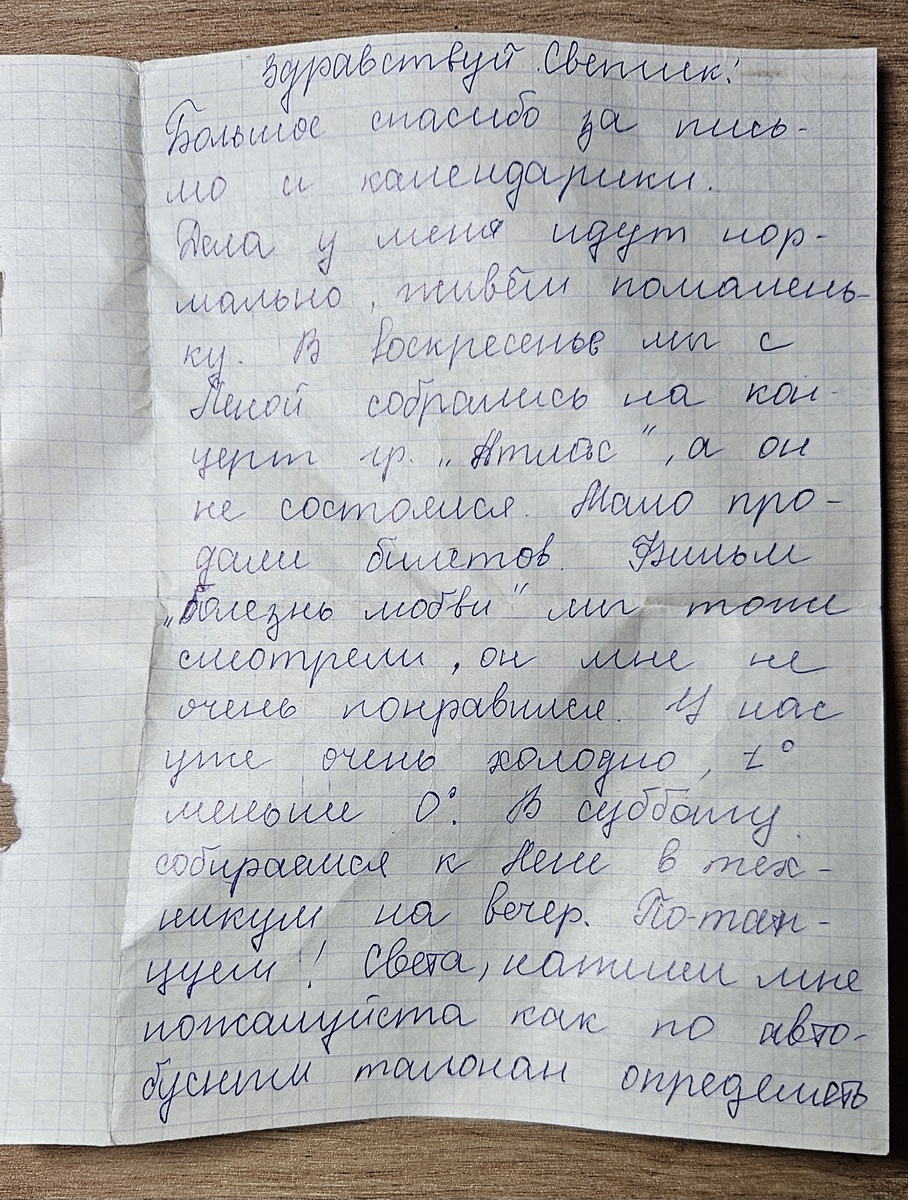 Здравствуй Светик!
Большое спасибо за пись-
мо и календарики.
Дела у меня идут нор-
мально, живём помалень-
ку. В воскресенье мы с
Леной собрались на кон-
церт гр. „Атлас", а он
не состоялся. Мало про-
дали билетов. Фильм
„Болезнь любви" мы тоже
смотрели, он мне не
очень понравился. У нас
уже очень холодно, 1°
меньше 0°. В субботу
собираемся к Лене в тех-
никум на вечер. По-тан-
цуем! Света, напиши мне
пожалуйста как по авто-
бусным талонам определить